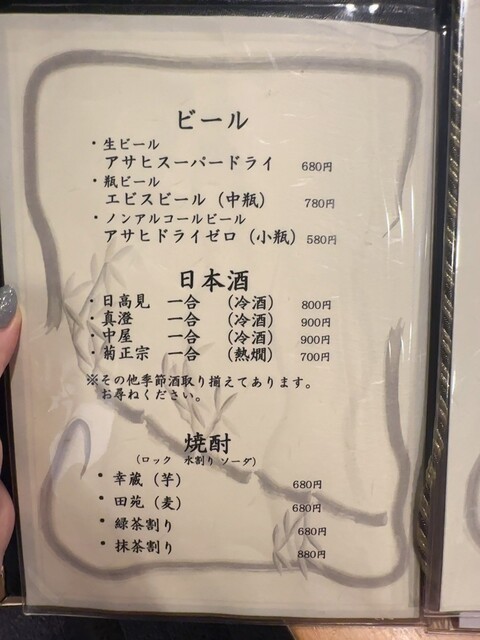 ビール
・生ビール
アサヒスーパードライ 680円
・瓶ビール
エビスビール（中瓶） 780円
・ノンアルコールビール
アサヒドライゼロ（小瓶） 580円
日本酒
・日高見 一合 （冷酒） 800円
・真澄 一合 （冷酒） 900円
・中屋 一合 （冷酒） 900円
・菊正宗 一合 （熱燗） 700円
※その他季節酒取り揃えてあります。
お尋ねください。
焼酎
（ロック 水割り ソーダ）
・幸蔵（芋） 680円
・田苑（麦） 680円
・緑茶割り 680円
・抹茶割り 880円